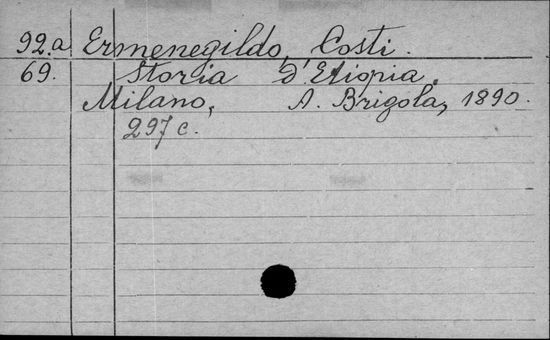 92.a Ermenegildo, Costi.
69. Storia D'Etiopia.
Milano, A. Brigola, 1890.
297 c.